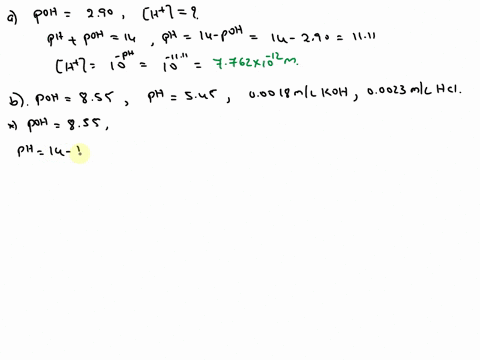 a) pOH = 2.90 , [H⁺] = ?
pH + pOH = 14 , pH = 14 - pOH = 14 - 2.90 = 11.11
[H⁺] = 10^-pH = 10^-11.11 = 7.762x10^-12 m.
b). pOH = 8.55 , pH = 5.45 , 0.0018 m/L KOH , 0.0023 m/L HCl.
*) pOH = 8.55 ,
pH = 14 -